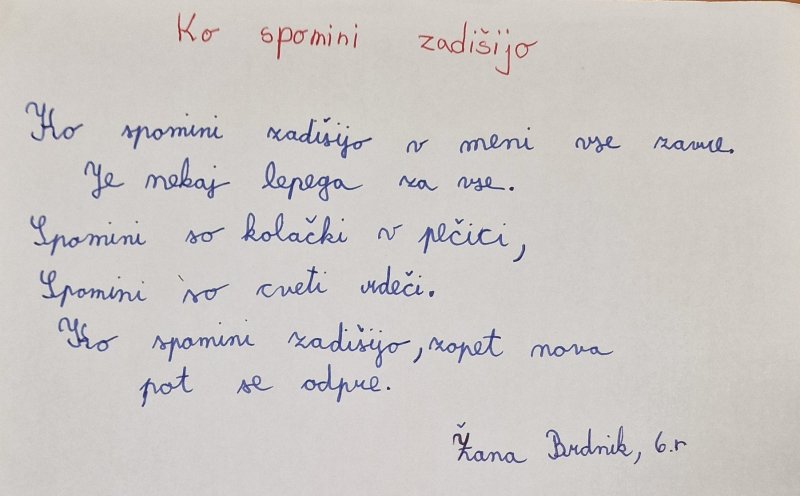 Ko spomini zadišijo
Ko spomini zadišijo v meni vse zavre.
Je nekaj lepega za vse.
Spomini so kolački v pečici,
Spomini so cveti rdeči.
Ko spomini zadišijo, zopet nova
pot se odpre.
Žana Brdnik, 6.r